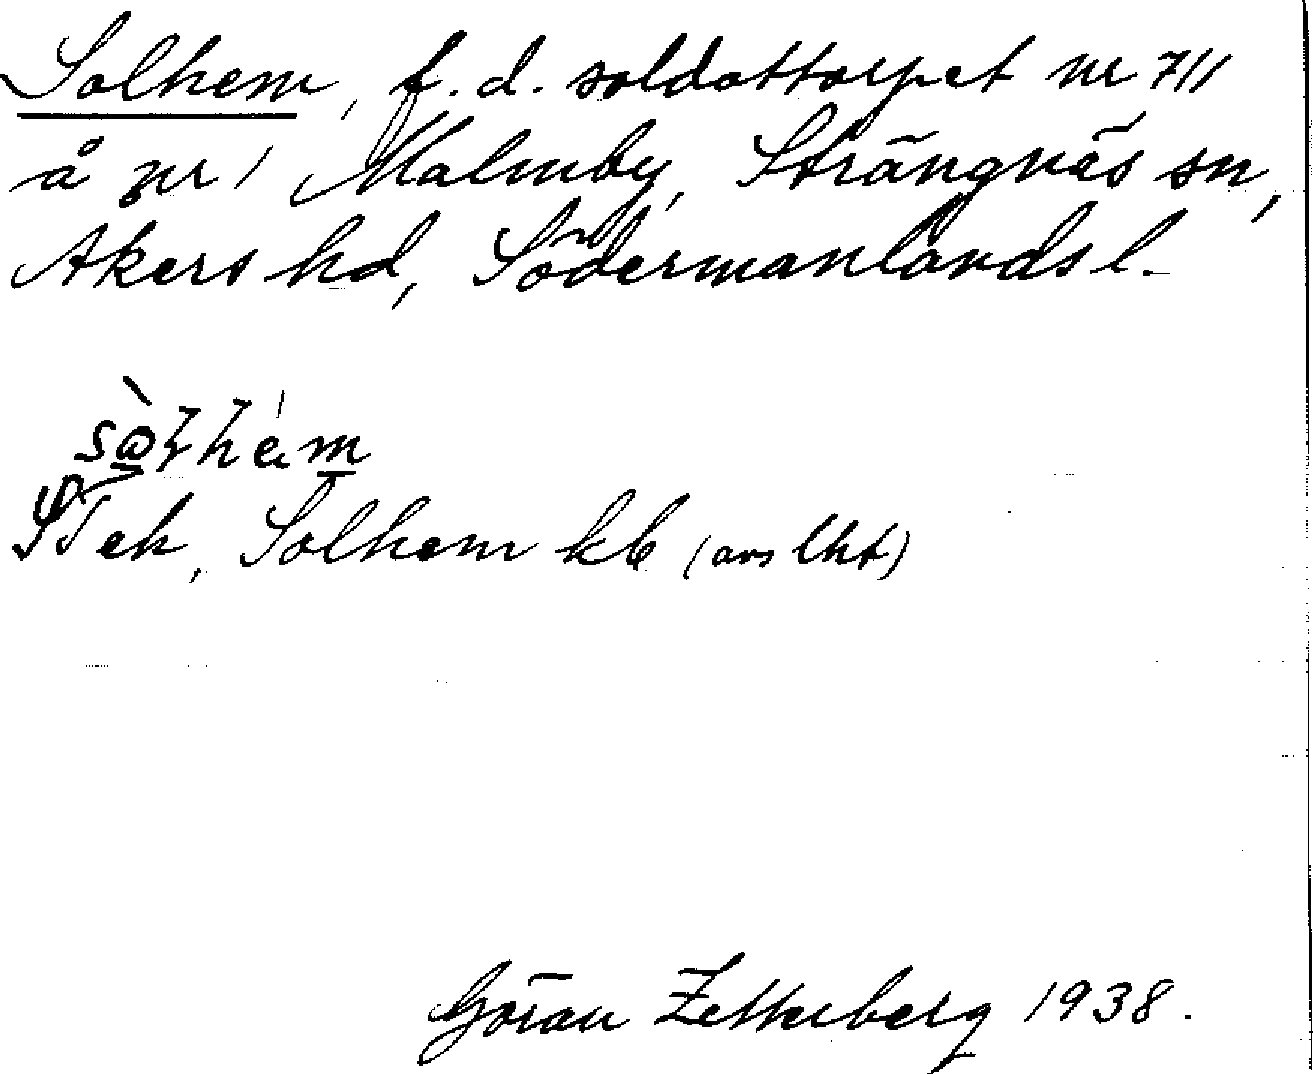 Solhem, f. d. soldattorpet nr 711
å nr 1 Malmby, Strängnäs sn,
Åkers hd, Södermanlands l.
Solhem kb (avs lht)
Göran Zetterberg 1938.